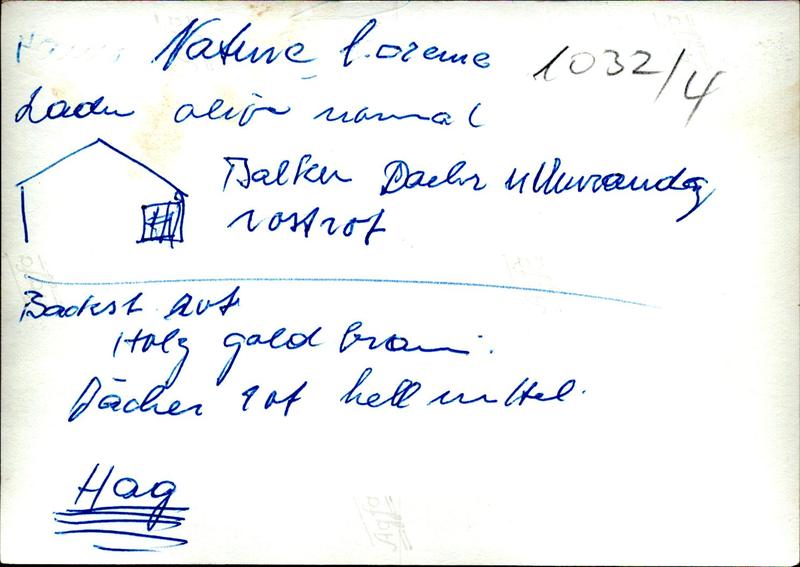 Nature l. creme 1032/4
Laden oliv normal
Balken Dach u Veranda
rostrot
Backst rot
Holz gold braun.
Dächer rot hell mittel.
Hag
Agfa